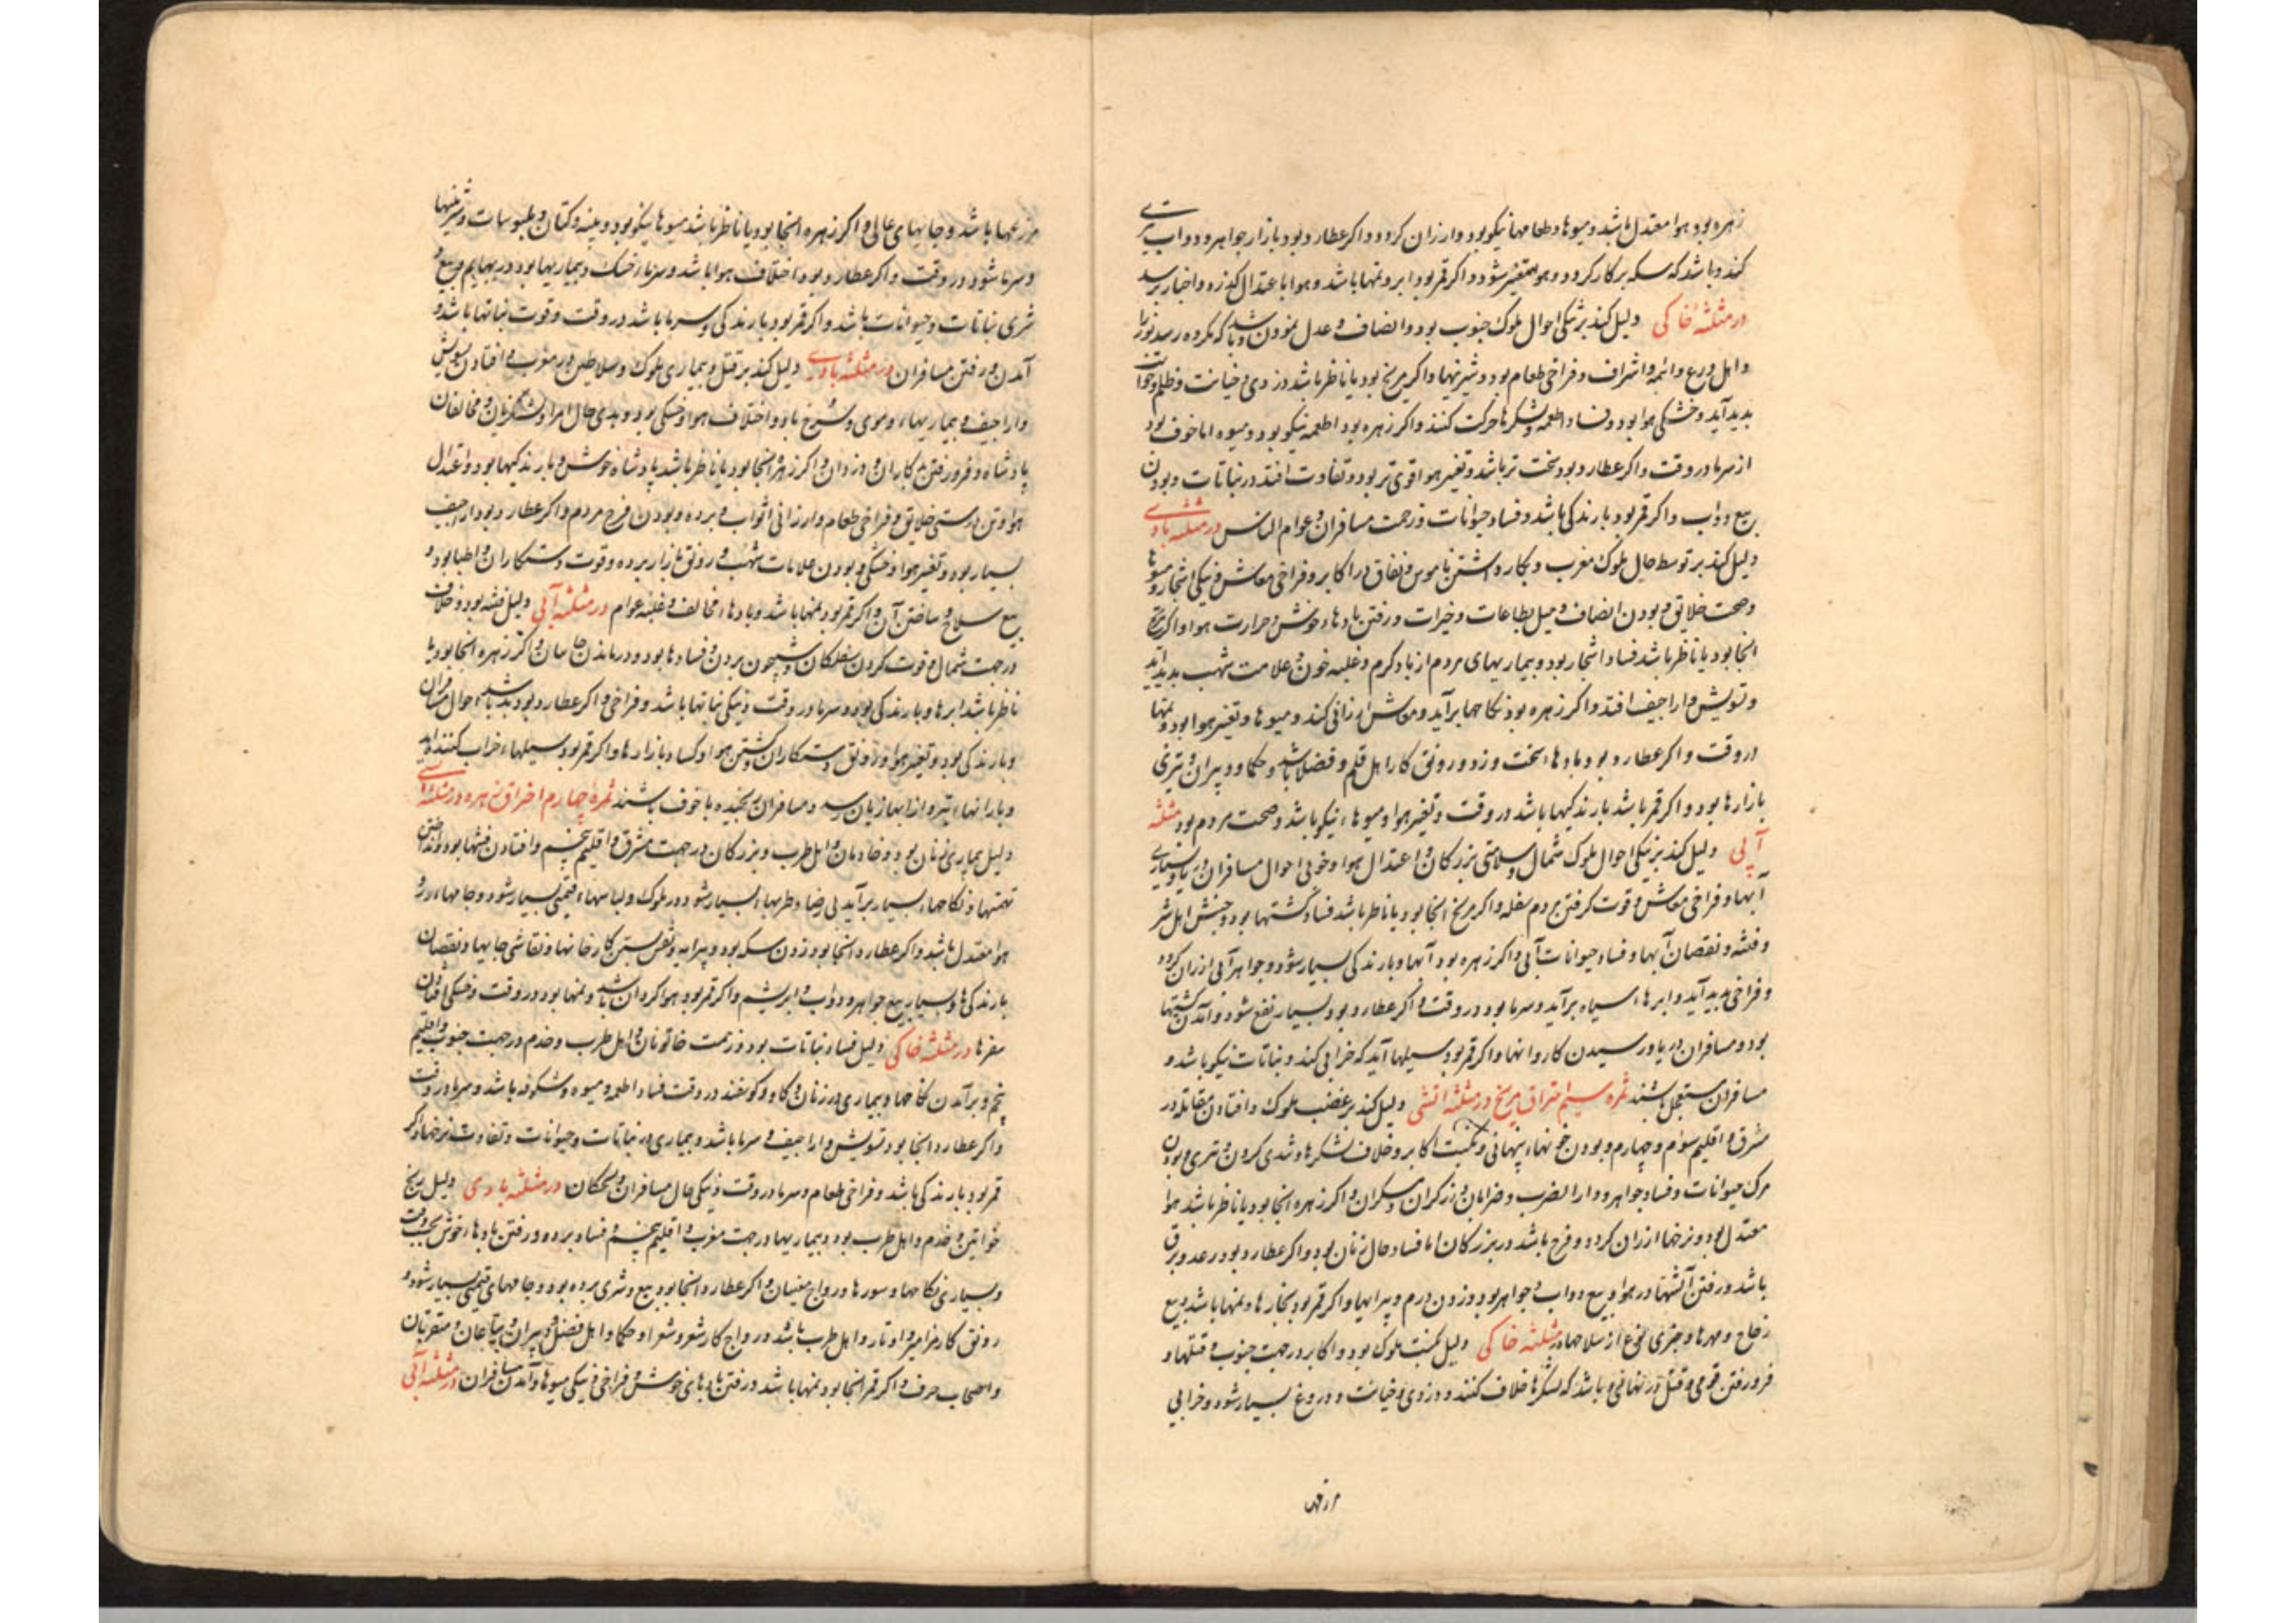 زهره بود هوا معتدل باشد و میوها و طعامها نیکو بود و ارزان کردد و اکر عطارد بود بازار جواهر و دواب تیزی
کند و باشد که سکه بر کار کردد و هوا متغیر شود و اکر قمر بود ابر و نمها باشد و هوا باعتدال کذرد و اخبار برسد
در مثلثه خاکی دلیل کند بر نیکی احوال ملوک جنوب بود و انصاف و عدل نمودن و باشد که برده رسد
و اهل ورع و ائمه و اشراف و فراخی طعام بود و شیرینیها و اکر مریخ بود یا ناظر باشد دزدی و خیانت و ظلم
بدید آید و خشکی هوا بود و فساد اطعمه و لشکرها حرکت کنند و اکر زهره بود اطعمه نیکو بود و میوه اما خوف بود
از سرما در وقت و اکر عطارد بود سخت تر باشد و تغیر هوا قوی تر بود و تفاوت افتد در نباتات و بودن
بیع دواب و اکر قمر بود بارندکی باشد و فساد حیوانات و زحمت مسافران و عوام الناس در مثلثه بادی
دلیل کند بر توسط حال ملوک مغرب و بکار داشتن ناموس و نفاق در اکابر و فراخی معاش و نیکی اشجار و میوها
و صحت خلایق و بودن انصاف و میل بطاعات و خیرات و رفتن بادهاء خوش و حرارت هوا و اکر مریخ
انجا بود یا ناظر باشد فساد اشجار بود و بیماریهای مردم از باد کرم و غلبه خون و علامت شهب بدید آید
و تشویش و اراجیف افتد و اکر زهره بود نکاحها برآید و معاش ارزانی کند و میوها و تغیر هوا بود و نمها
در وقت و اکر عطارد بود بادهاء سخت وزد و رونق کار اهل قلم و فضلا باشد و حکما و دبیران و تیزی
بازارها بود و اکر قمر باشد بارندکیها باشد در وقت و تغیر هوا و میوهاء نیکو باشد و صحت مردم بود مثلثه
آبی دلیل کند بر نیکی احوال ملوک شمال و سلامتی بزرکان و اعتدال هوا و خوبی احوال مسافران دریا و بسیاری
آبها و فراخی معاش و قوت کرفتن مردم سفله و اکر مریخ انجا بود یا ناظر باشد فساد کشتیها بود و جنبش اهل شر
و فتنه و نقصان آبها و فساد حیوانات آبی و اکر زهره بود آبها و بارندکی بسیار شود و جواهر آبی ارزان کردد
و فراخی بدید آید و ابرهاء سیاه برآید و سرما بود در وقت و اکر عطارد بود بسیار نفع شود و آمدن کشتیها
بود و مسافران دریا و رسیدن کاروانها و اکر قمر بود سیلها آید که خرابی کند و نباتات نیکو باشد و
مسافران مستعجل باشند ثمره سیم احتراق مریخ در مثلثه اتشی دلیل کند بر غضب ملوک و افتادن مقاتله در
مشرق و اقلیم سوم و چهارم و بودن خونهاء پنهانی و نکبت اکابر و خلاف لشکرها و تندی کردن و تیزی و بودن
مرک حیوانات و فساد جواهر و دارالضرب و ضرابان و زرکران و مسکران و اکر زهره انجا بود یا ناظر باشد هوا
معتدل بود و نرخها ارزان کردد و فرح باشد در بزرکان اما فساد حال زنان بود و اکر عطارد بود رعد و برق
باشد و رفتن آتشها در هوا و بیع دواب و جواهر بود و زدن درم و پیرایها و اکر قمر بود بخارها و نمها باشد و بیع
زجاج و مهرها و چیزی نوع از سلاحها در مثلثه خاکی دلیل نکبت ملوک بود و اکابر در جهت جنوب و قتلها و
فرو رفتن قومی و قتل در نهانی و باشد که لشکرها خلاف کنند و دزدی و خیانت و دروغ بسیار شود و خرابی
مزرعها
مزرعها باشد و جایهای عالی و اکر زهره انجا بود یا ناظر باشد میوها نیکو بود و پنبه و کتان و ملبوسات و شیرینیها
و سرما شود در وقت و اکر عطارد بود اختلاف هوا باشد و سرماء خشک و بیماریها بود در بهایم و بیع و
شری نباتات و حیوانات باشد و اکر قمر بود بارندکی و سرما باشد در وقت و قوت نباتها باشد و
آمدن و رفتن مسافران در مثلثه بادی دلیل کند بر قتل و بیماری ملوک و سلاطین در مغرب و افتادن تشویش
و اراجیف و بیماریهاء دموی و سرخ باد و اختلاف هوا و خشکی بود و بدی حال امرا و لشکریان و مخالفان
پادشاه و فرو رفتن بدکاران و دزدان و اکر زهره انجا بود یا ناظر باشد پادشاه خوش و بارندکیها بود و اعتدال
هوا و تن درستی خلایق و فراخی طعام و ارزانی اثواب و برده و بودن فرح مردم و اکر عطارد بود اراجیف
بسیار بود و تغیر هوا و خشکی و بودن علامات شهب و رونق بازار برده و قوت دستکاران و اطبا بود و
بیع سلاح و ساختن آن و اکر قمر بود نمها باشد و بادهاء مخالف و غلبه عوام در مثلثه آبی دلیل فتنه بود و خلاف
در جهت شمال و قوت کردن سفلکان و شبیخون بردن و فسادها بود و درماندن و اکر زهره انجا بود یا
ناظر باشد ابرها و بارندکی بود و سرما در وقت و نیکی نباتها باشد و فراخی و اکر عطارد بود بد باشد احوال مسافران
و بارندکی بود و تغیر هوا و رونق دستکاران و کشتن هوا و کساد بازارها و اکر قمر بود سیلهاء خراب کننده آید
و بارانهاء تیره و از ابها زیان رسد و مسافران رنجیده با خوف باشند ثمره چهارم احتراق زهره در مثلثه اتشی
دلیل بیماری زنان بود و خادمان و اهل طرب و بزرکان در جهت مشرق و اقلیم پنجم و افتادن فتنها بود و انداختن
تهمتها و نکاحهاء بسیار برآید بی رضا و طربهاء بسیار شود در ملوک و لباسهاء قیمتی بسیار شود و جامهاء زر و
هوا معتدل باشد و اکر عطارد انجا بود زدن سکه بود و پیرایه و نقش بستن کارخانها و نقاشی جایها و نقصان
بارندکی‌ها و بسیار بیع جواهر و دواب و ابریشم و اکر قمر بود هوا کردان باشد و نمها بود در وقت و خشکی افتادن
سفرها در مثلثه خاکی دلیل فساد نباتات بود و زحمت خاتونان و اهل طرب و خدم در جهت جنوب و اقلیم
پنجم و برآمدن نکاحها و بیماری در زنان و کاو و کوسفند در وقت فساد اطعمه و میوه و شکوفه باشد و سرما در وقت
و اکر عطارد انجا بود تشویش و اراجیف و سرما باشد و بیماری در نباتات و حیوانات و تفاوت نرخها و اکر
قمر بود بارندکی باشد و فراخی طعام و سرما در وقت و نیکی حال مسافران و در مثلثه بادی دلیل رنج
خواتین و خدم و اهل طرب بود و بیماریها در جهت مغرب و اقلیم پنجم و فساد برده و رفتن بادهاء خوش بحسب وقت
و بسیاری نکاحها و سورها و رواج مغنیان و اکر عطارد انجا بود بیع و شری برده بود و جامهای قیمتی بسیار شود و
رونق کار مزامیر و اوتار و اهل طرب باشد و رواج کار شعر و شعرا و حکما و اهل فضل و دبیران و بیاعان و مقربان
و اصحاب حرف و اکر قمر انجا بود نمها باشد و رفتن بادهای خوش و فراخی و نیکی میوها و آمدن مسافران در مثلثه آبی